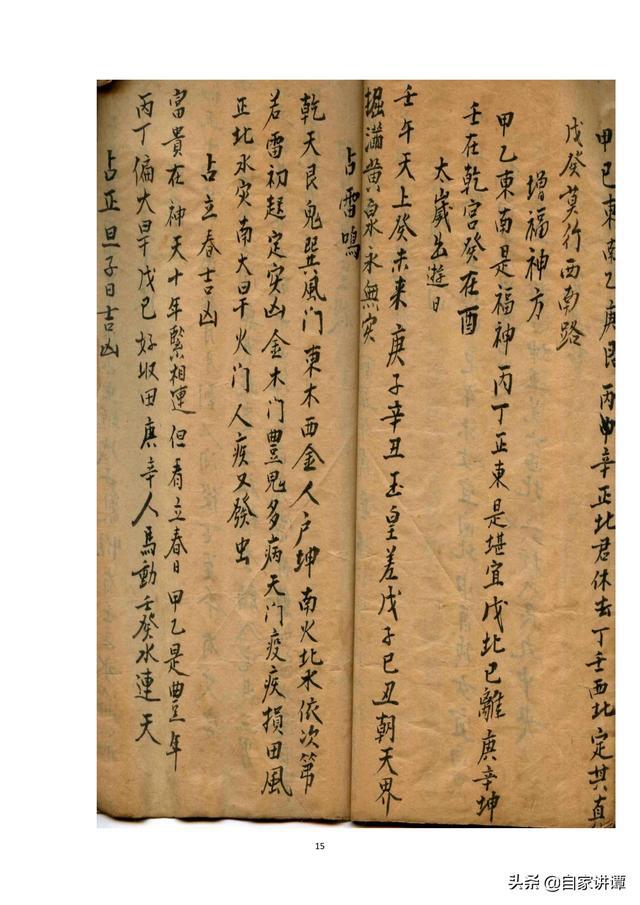 甲己東南乙庚艮 丙辛正北君休去 丁壬西北定其真
戊癸莫行西南路
增福神方
甲乙東南是福神 丙丁正東是堪宜 戊北己離庚辛坤
壬在乾宮癸在酉
太歲出遊日
壬午天上癸未来 庚子辛丑玉皇差 戊子己丑朝天界
掘满黄泉永無灾
占雷鳴
乾天艮鬼巽風门 東木西金人户坤 南火北水依次第
若雷初起定灾凶 金木門豊鬼多病 天门疫疾損田風
正北水灾南大旱 火門人疾又發虫
占立春吉凶
富貴在神天 十年緊相連 但看立春日 甲乙是豊年
丙丁偏大旱 戊己好收田 庚辛人馬動 壬癸水連天
占正旦子日吉凶
15
头条 @自家讲谭